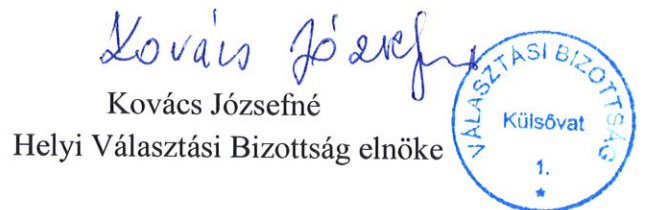 Kovács Józsefné
Kovács Józsefné
Helyi Választási Bizottság elnöke
VÁLASZTÁSI BIZOTTSÁG
Külsővat
1.
*